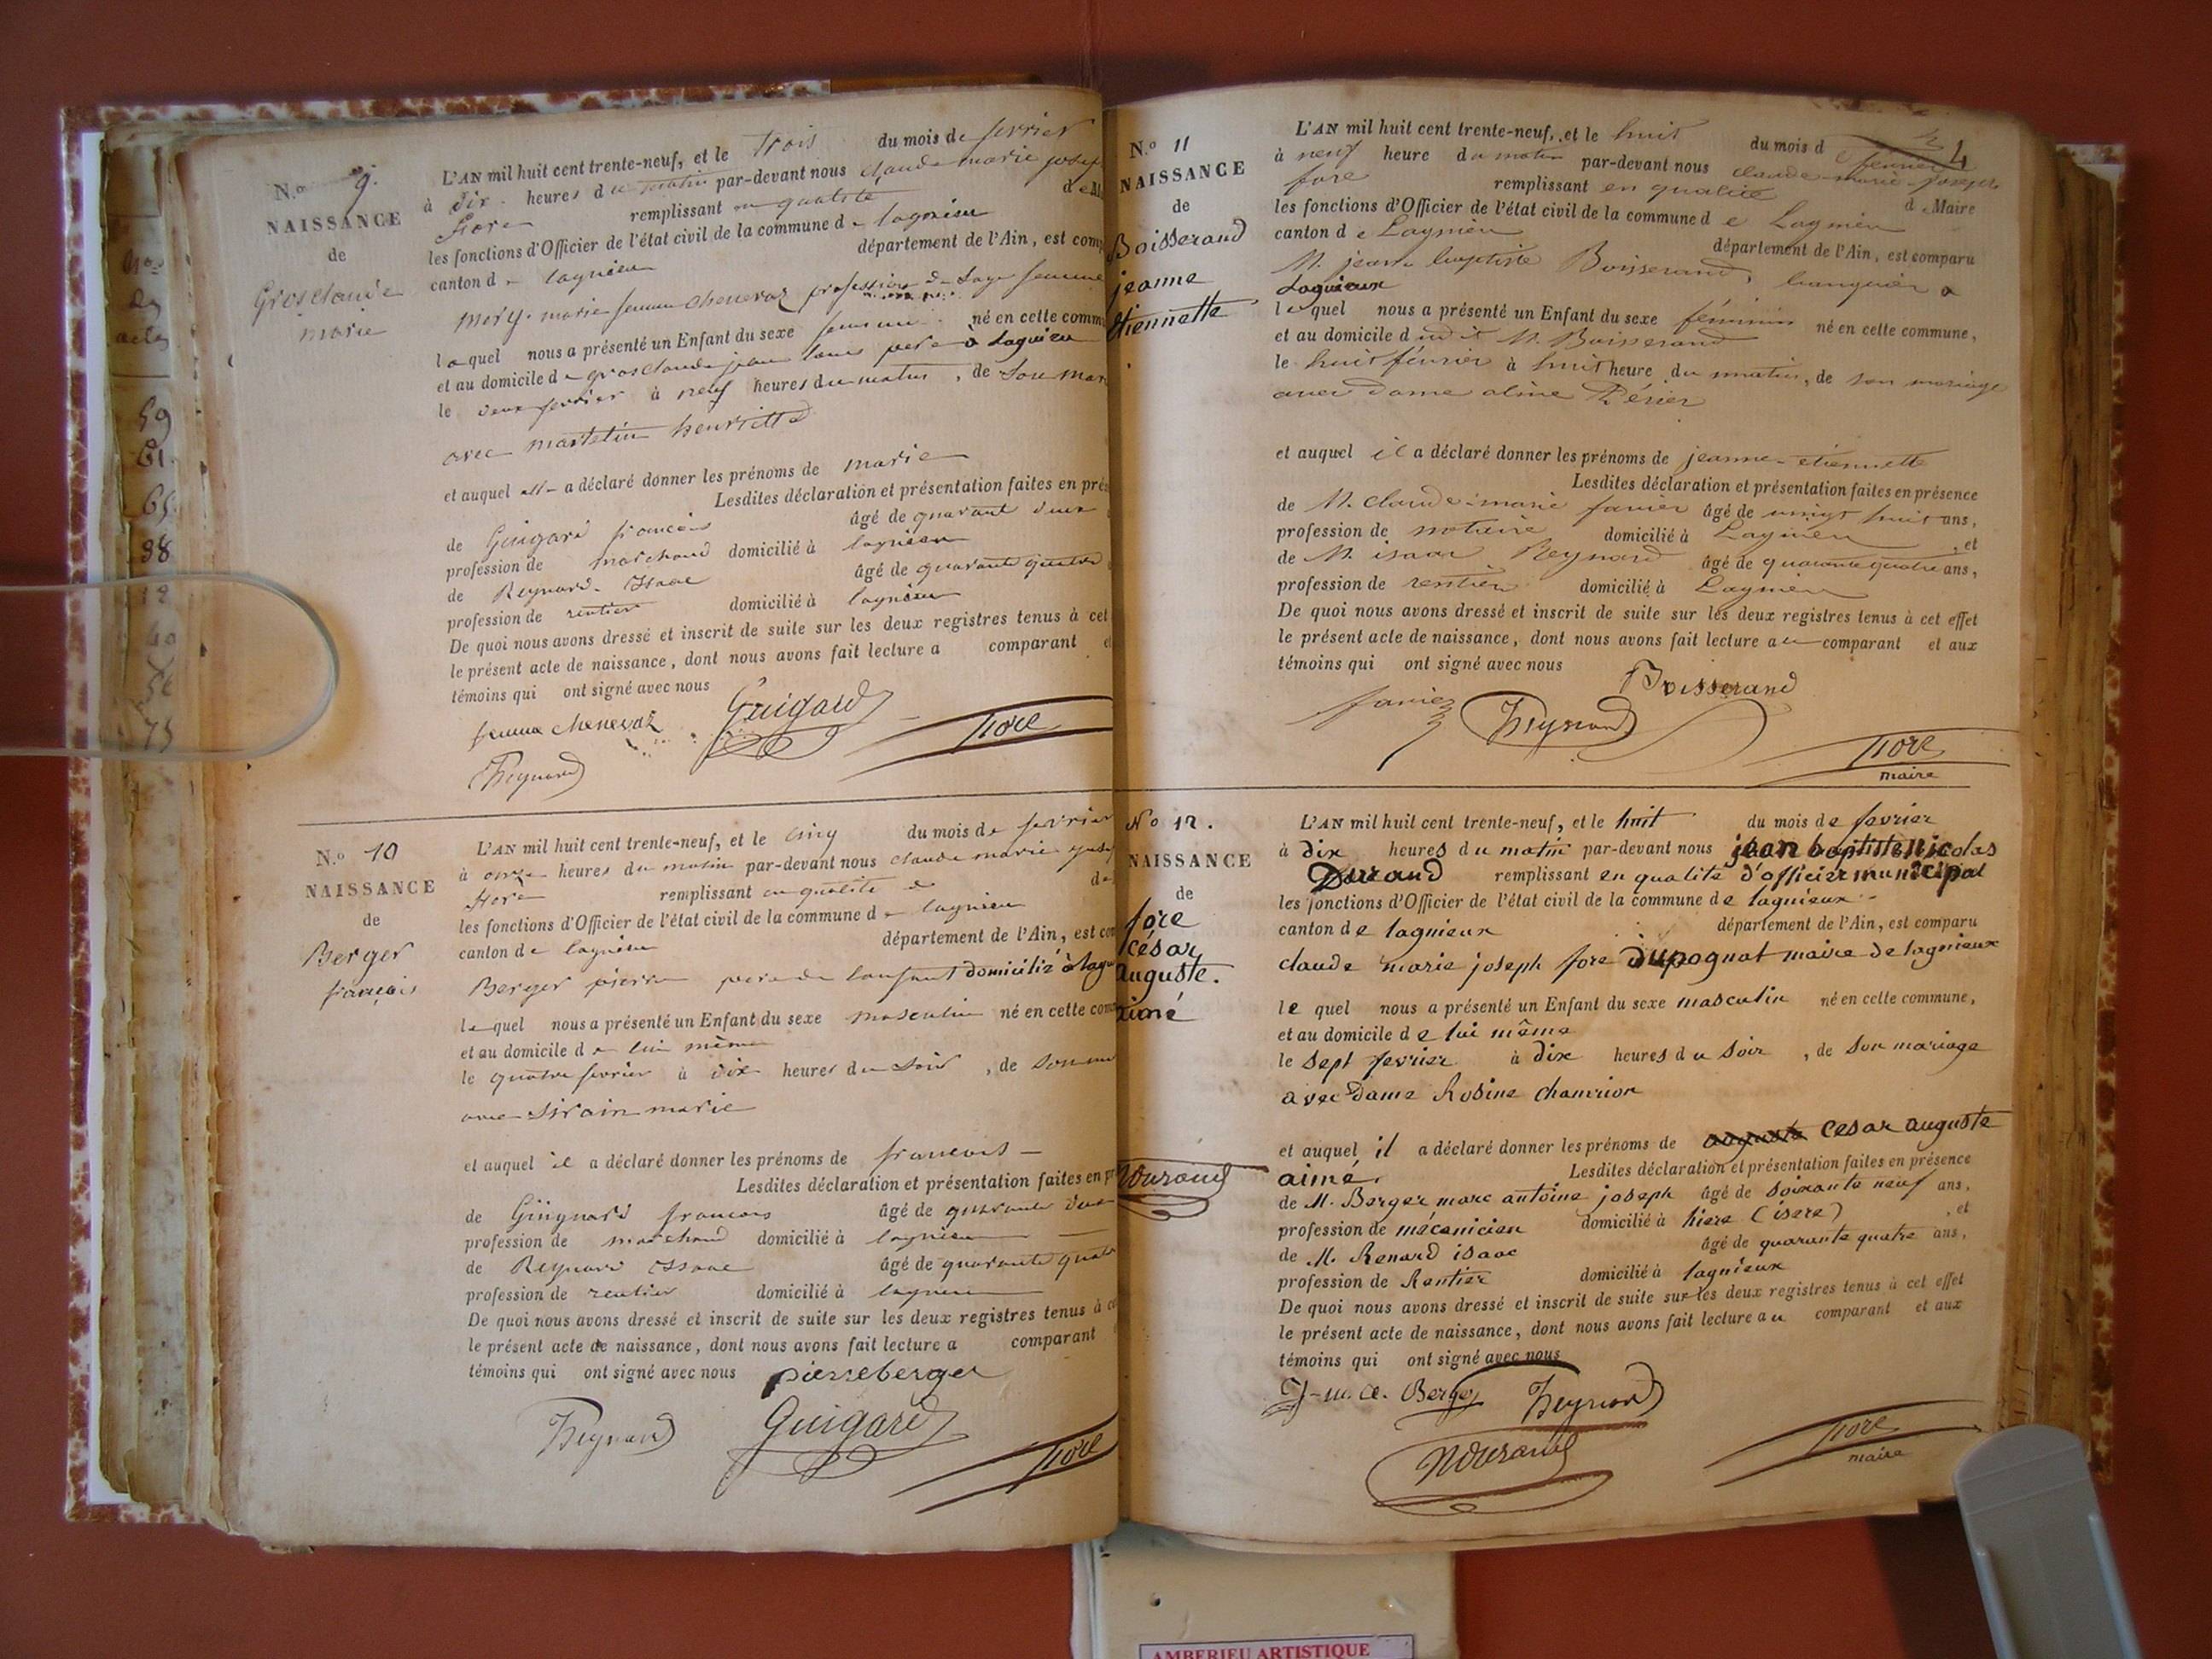 N.o 9.
NAISSANCE
de
Grosclaude
marie
L'AN mil huit cent trente-neuf, et le trois du mois de fevrier
à dix heures du matin par-devant nous claude marie josep
fore remplissant en qualité de M
les fonctions d'Officier de l'état civil de la commune de lagnieu
canton de lagnieu département de l'Ain, est comp
marie femme chenevaz profession de Sage femme
laquel nous a présenté un Enfant du sexe né en cette commu
et au domicile de grosclaude jean pere à Lagnieu
le deux fevrier à neuf heures du matin, de Son mar
avec martelin henriette
et auquel elle a déclaré donner les prénoms de marie
Lesdites déclaration et présentation faites en pré
de Guigard francois âgé de quarant deux
profession de marchand domicilié à lagnieu
de Reynard Isaac âgé de quarante quatre
profession de rentier domicilié à lagnieu
De quoi nous avons dressé et inscrit de suite sur les deux registres tenus à cet
le présent acte de naissance, dont nous avons fait lecture a comparant e
témoins qui ont signé avec nous
femme chenevaz Guigard fore
Reynard
N.o 10
NAISSANCE
de
Berger
français
L'AN mil huit cent trente-neuf, et le cinq du mois de fevrier
à onze heures du matin par-devant nous claude marie
fore remplissant en qualité de
les fonctions d'Officier de l'état civil de la commune de lagnieu
canton de lagnieu département de l'Ain, est com
Berger pierre pere de lanfant domicilié à lagn
lequel nous a présenté un Enfant du sexe masculin né en cette com
et au domicile de lui même
le quatre fevrier à dix heures du soir, de son
avec Sirain marie
et auquel il a déclaré donner les prénoms de francois
Lesdites déclaration et présentation faites en pr
de Guignard francois âgé de quarante deux
profession de marchand domicilié à lagnieu
de Reynard Issaac âgé de quarante quatr
profession de rentier domicilié à lagnieu
De quoi nous avons dressé et inscrit de suite sur les deux registres tenus à c
le présent acte de naissance, dont nous avons fait lecture a comparant
témoins qui ont signé avec nous pierreberger
Reynard Guigard fore
4
N.o 11
NAISSANCE
de
Boisserand
jeanne
étiennette
L'AN mil huit cent trente-neuf, et le huit du mois de fevrier
à neuf heure du matin par-devant nous claude-marie-joseph
fore remplissant en qualité d Maire
les fonctions d'Officier de l'état civil de la commune de Lagnieu
canton de Lagnieu département de l'Ain, est comparu
M. jean baptiste Boisserand, banquier a
Lagnieux
lequel nous a présenté un Enfant du sexe féminin né en cette commune,
et au domicile dudit M. Boisserand
le huit février à huit heure du matin, de son mariage
avec dame aline Périer
et auquel il a déclaré donner les prénoms de jeanne-étiennette
Lesdites déclaration et présentation faites en présence
de M. claude-marie favier âgé de vingt huit ans,
profession de notaire domicilié à Lagnieu, et
de M. isaac Reynard âgé de quarante quatre ans,
profession de rentier domicilié à Lagnieu
De quoi nous avons dressé et inscrit de suite sur les deux registres tenus à cet effet
le présent acte de naissance, dont nous avons fait lecture au comparant et aux
témoins qui ont signé avec nous Boisserand
favier Reynard fore
maire
No 12.
NAISSANCE
de
fore
césar
auguste.
aimé
Ndurand
L'AN mil huit cent trente-neuf, et le huit du mois de fevrier
à dix heures du matin par-devant nous jean baptiste Nicolas
Durand remplissant en qualité d'officier municipal
les fonctions d'Officier de l'état civil de la commune de lagnieux
canton de lagnieux département de l'Ain, est comparu
claude marie joseph fore dupognat maire de lagnieux
lequel nous a présenté un Enfant du sexe masculin né en cette commune,
et au domicile de lui même
le sept fevrier à dix heures du soir, de son mariage
avec Dame Rosine chamrion
et auquel il a déclaré donner les prénoms de auguste cesar auguste
aimé. Lesdites déclaration et présentation faites en présence
de M. Berger marc antoine joseph âgé de soixante neuf ans,
profession de mécanicien domicilié à hiere (isere), et
de M. Renard isaac âgé de quarante quatre ans,
profession de Rentier domicilié à lagnieux
De quoi nous avons dressé et inscrit de suite sur les deux registres tenus à cet effet
le présent acte de naissance, dont nous avons fait lecture au comparant et aux
témoins qui ont signé avec nous
j-m. a. Berger Reynard
Ndurand fore
maire
59
61.
65.
88
AMBERIEU ARTISTIQUE